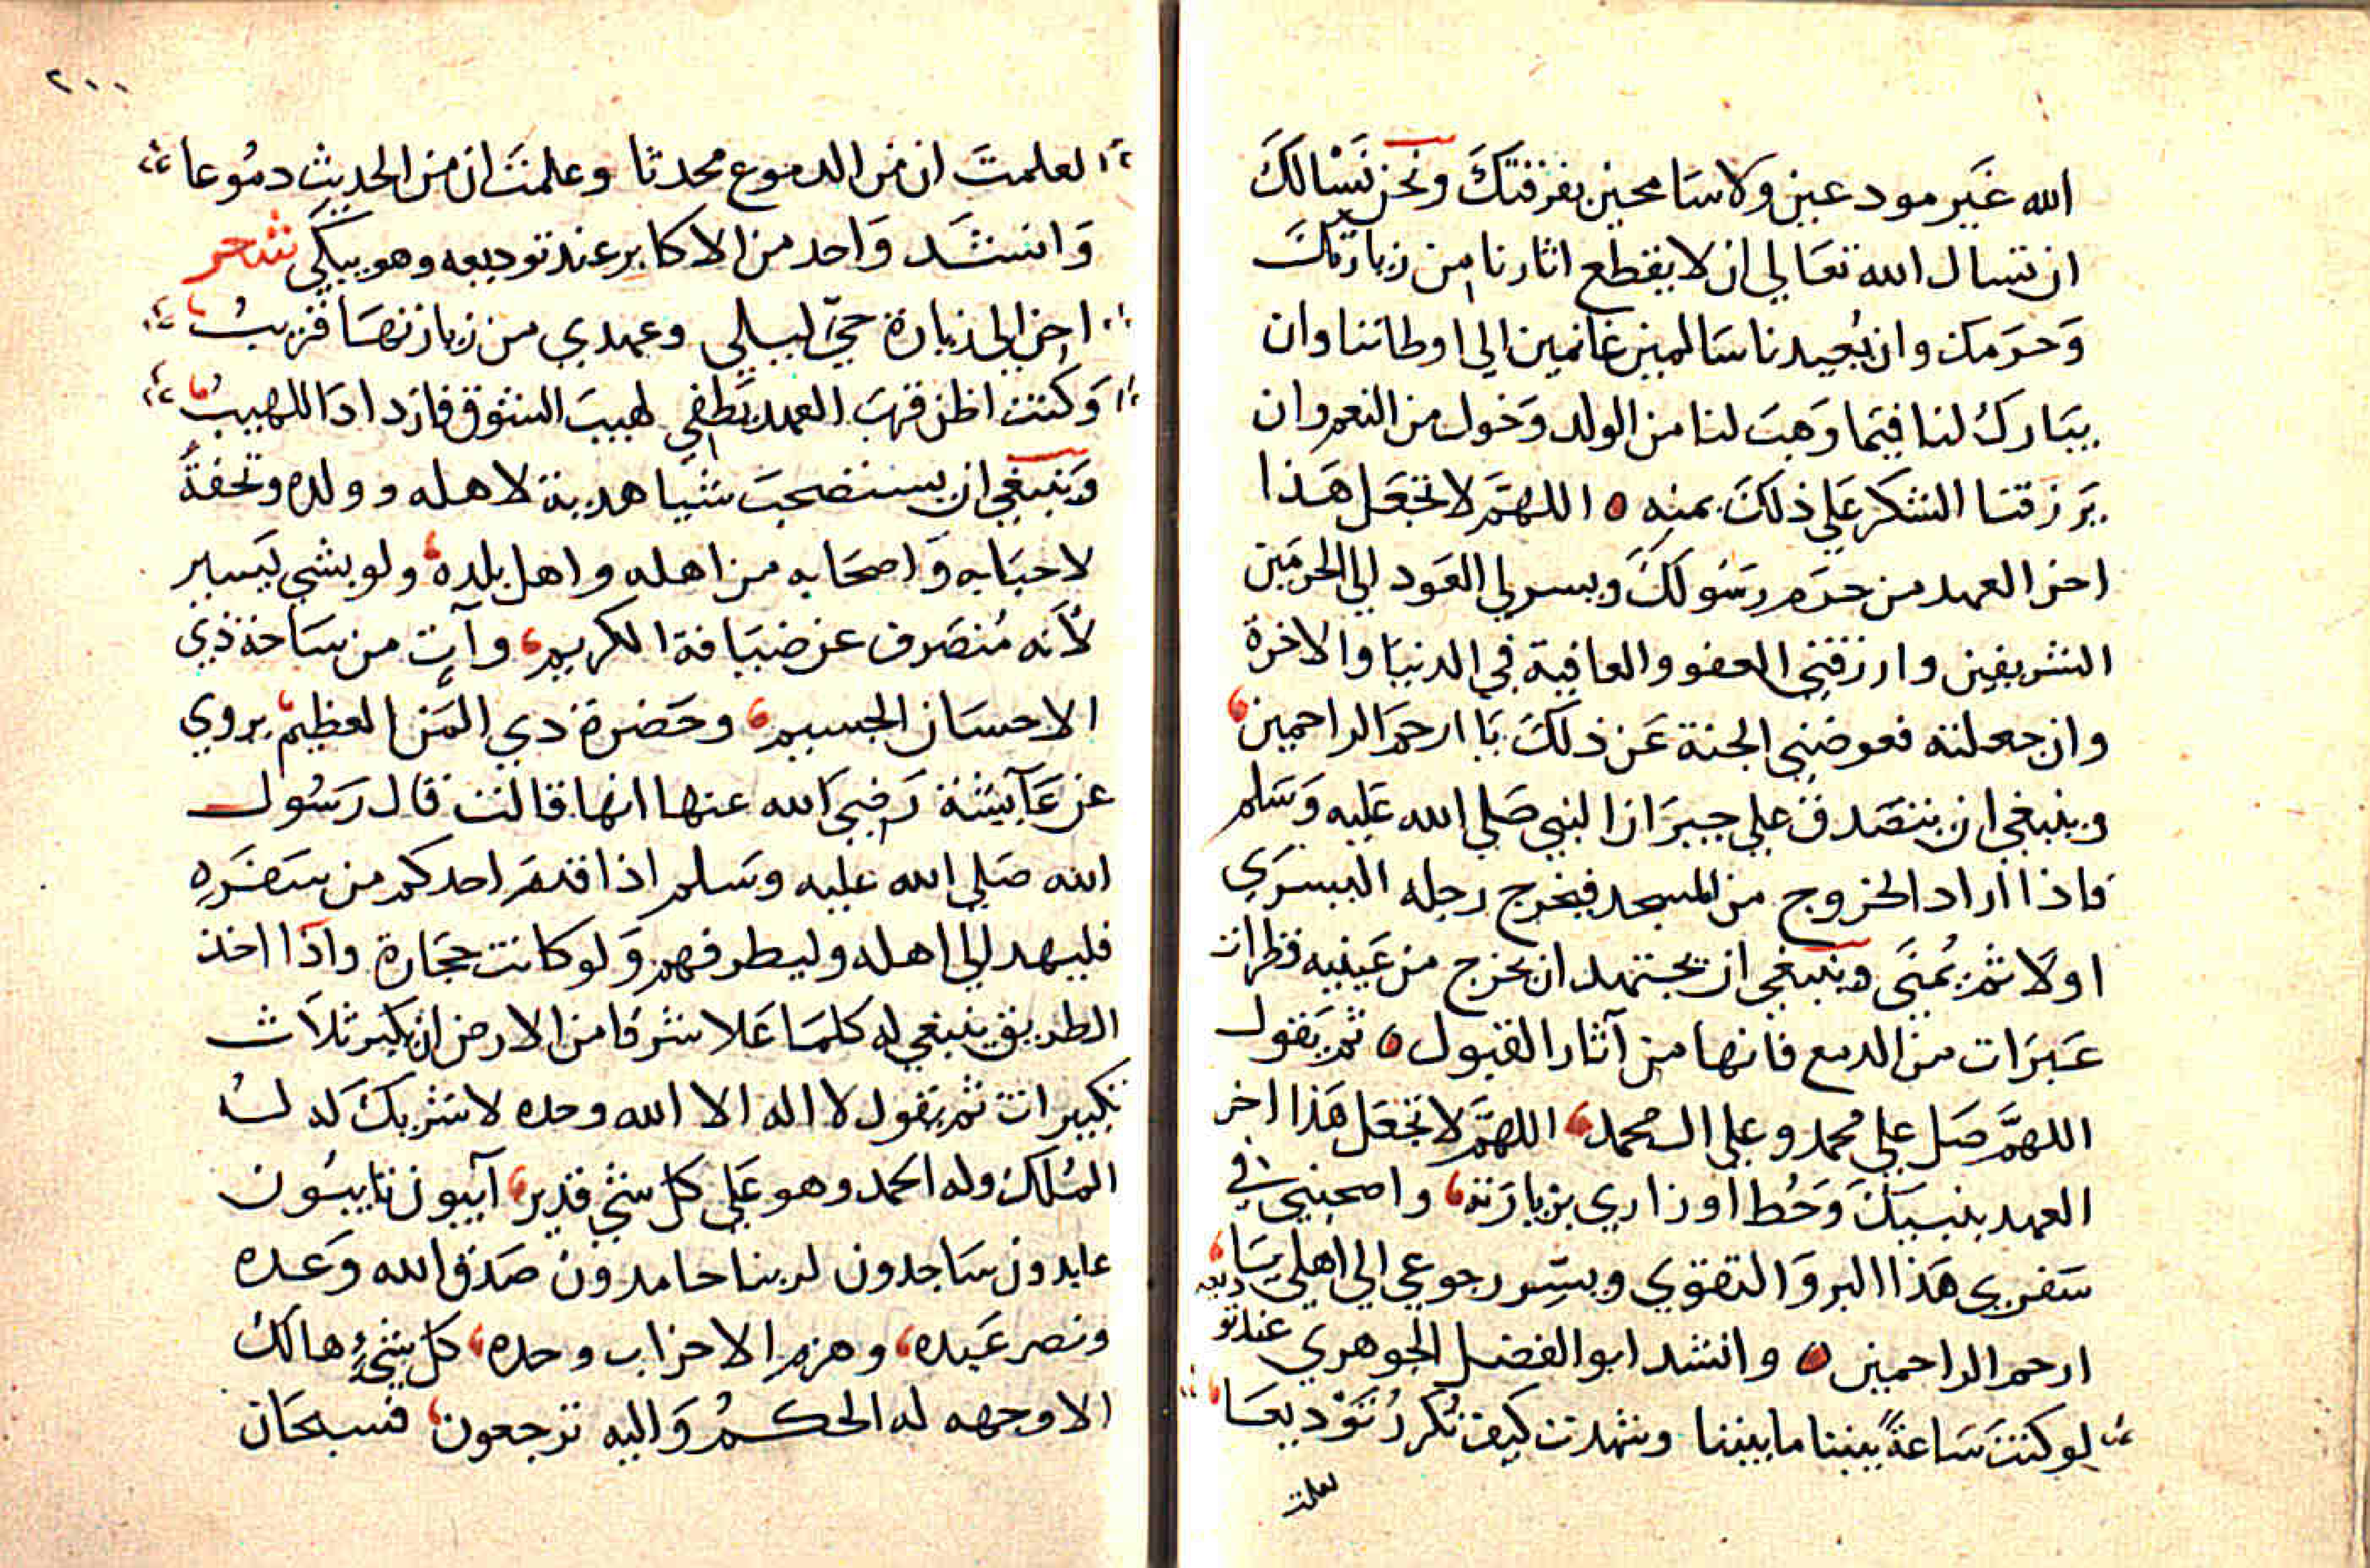 الله غَير مودعين ولا سَامحين بفرقتكَ ونحن نَسْالكَ
ان تسال الله تعَالي ان لا يقطع اثارنا من زيارتكَ
وَحَرَمكَ وان يُعيدنا سَالمين غانمين الي اوطاننا وان
يبَارك لنا فيمَا وَهبَ لنا من الولد وَخول من النعم وان
يَرزقنا الشكر عَلي ذلكَ بمنه ٥ اللهمَّ لا تجعَل هَذا
اخر العهد من حرَم رسَولكَ ويسر لي العَود الي الحرمَين
الشريفين وارزقني العفو والعافية في الدنيَا والاخرة
وان جعلته فعوضني الجنة عَن ذلكَ يَا ارحمَ الراحمين
وينبغي ان يتصَدق علي جيرَان النبي صَلي الله عَليه وَسَلم
فاذا اراد الخروج من المسجد فيخرج رجله اليسرَي
اولا ثم يُمنَي وينبغي ان يجتهد ان يخرج من عَينيه قطرات
عَبرَات من الدمع فانها من آثار القبول ٥ ثم يَقول
اللهمَّ صَل علي محمد وعلي ال محمد اللهمَّ لا تجعَل هَذا اخر
العهد بنبيكَ وَحُط اوزاري بزيارَته واصحبني في
سَفري هَذا البر وَالتقوي ويسِّر رجوعي الي اهلي يَا
ارحم الراحمين ٥ وانشد ابو الفضل الجوهري عند توديعه
لو كنتَ سَاعةً بيننا ما بيننا وشهدت كيف نُكررُ تَوْديعَا
لعلمت
٢٠٠
لعلمتَ ان من الدموع محدثا وعلمتَ ان من الحديث دمُوعا
وَانشَد وَاحد من الاكابر عند توديعه وهو يبكَي شعر
احن الي زيارة حيّ ليلي وعهدي من زيارتهَا قريبُ
وَكنت اظن قربَ العهد يَطفي لهيبَ الشوق فازدادَ اللهيبُ
وَينبَغي ان يستصحبَ شيا هدية لاهله وولده وتحفةً
لاحبَابه وَاصحَابه من اهله واهل بلده ولو بشي يَسير
لأنه مُنصَرف عن ضيَافة الكريم وآتٍ من سَاحة ذي
الاحسَان الجسيم وحَضرة ذي المَن العظيم يروي
عن عَآيشة رَضيَ الله عنها انها قالت قال رَسُول
الله صَلي الله عليه وسَلم اذا قدمَ احدكم من سَفَره
فليهد الي اهله وليطرفهم وَلو كانت حجَارة واذا اخذ
الطريق ينبغي له كلمَا عَلا شرفا من الارض ان يكبر ثلاَث
تكبيرات ثم يَقول لا اله الا الله وحده لا شريكَ له لهُ
المُلكَ وله الحمد وهو عَلي كل شيْ قدير آيبون تايبُون
عابدون سَاجدون لربنا حامدون صَدق الله وَعده
ونصر عَبده وهزم الاحزاب وحده كل شيءٍ هالك
الا وجهه له الحكمُ وَاليه ترجعون فسبحَان